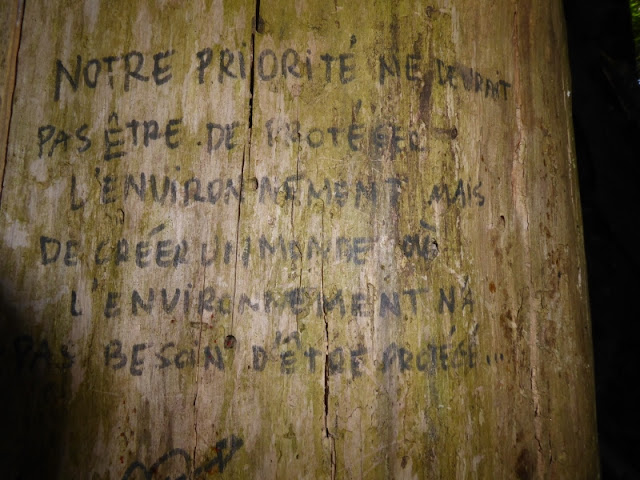 NOTRE PRIORITÉ NE DEVRAIT
PAS ÊTRE DE PROTÉGER
L'ENVIRONNEMENT MAIS
DE CRÉER UN MONDE OÙ
L'ENVIRONNEMENT N'A
PAS BESOIN D'ÊTRE PROTÉGÉ...